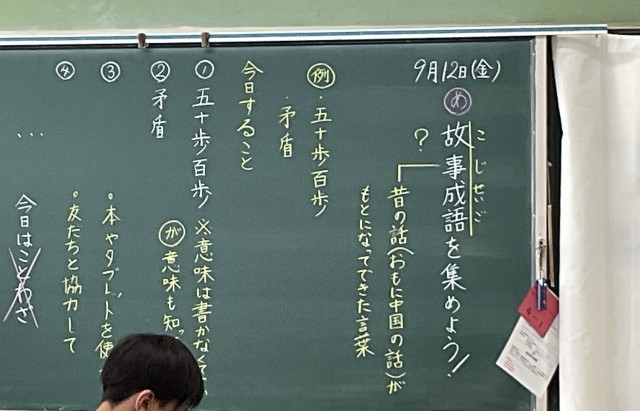 9月12日(金)
め
故事成語を集めよう!
こじせいご
?
昔の話(おもに中国の話)が
もとになってできた言葉
例
・五十歩百歩
・矛盾
今日すること
① 五十歩百歩 ※意味は書かなくて
② 矛盾 が 意味も知
③ 。本やタブレットを使
④ 。友だちと協力して
…
今日はことわざ